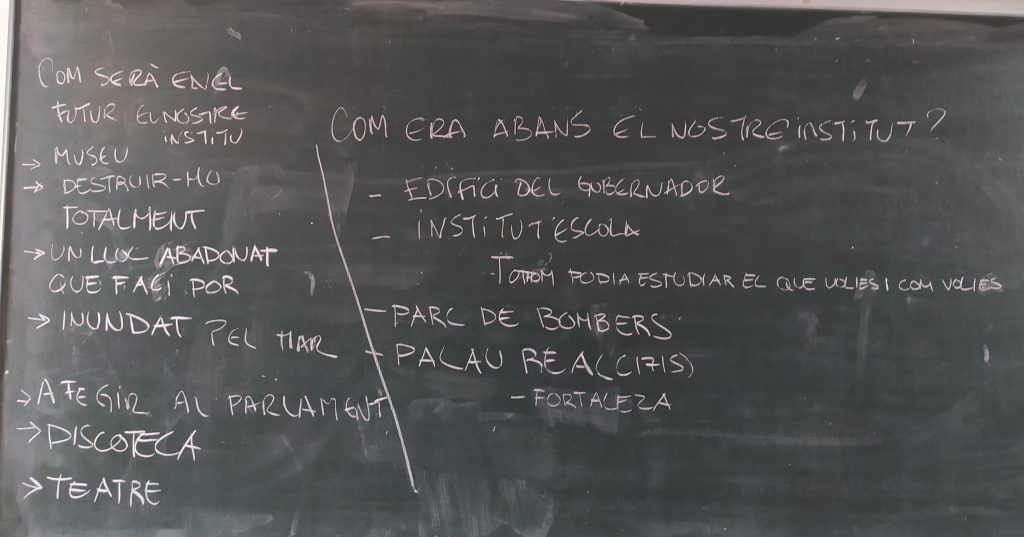 COM SERÀ EN EL
FUTUR EL NOSTRE
INSTITU
→ MUSEU
→ DESTRUIR-HO
TOTALMENT
→ UN LLOC ABADONAT
QUE FACI POR
→ INUNDAT PEL MAR
→ AFEGIR AL PARLAMENT
→ DISCOTECA
→ TEATRE
COM ERA ABANS EL NOSTRE INSTITUT?
- EDIFICI DEL GUBERNADOR
- INSTITUT ESCOLA
TOTHOM PODIA ESTUDIAR EL QUE VOLIES I COM VOLIES
- PARC DE BOMBERS
- PALAU REAL (1715)
- FORTALEZA